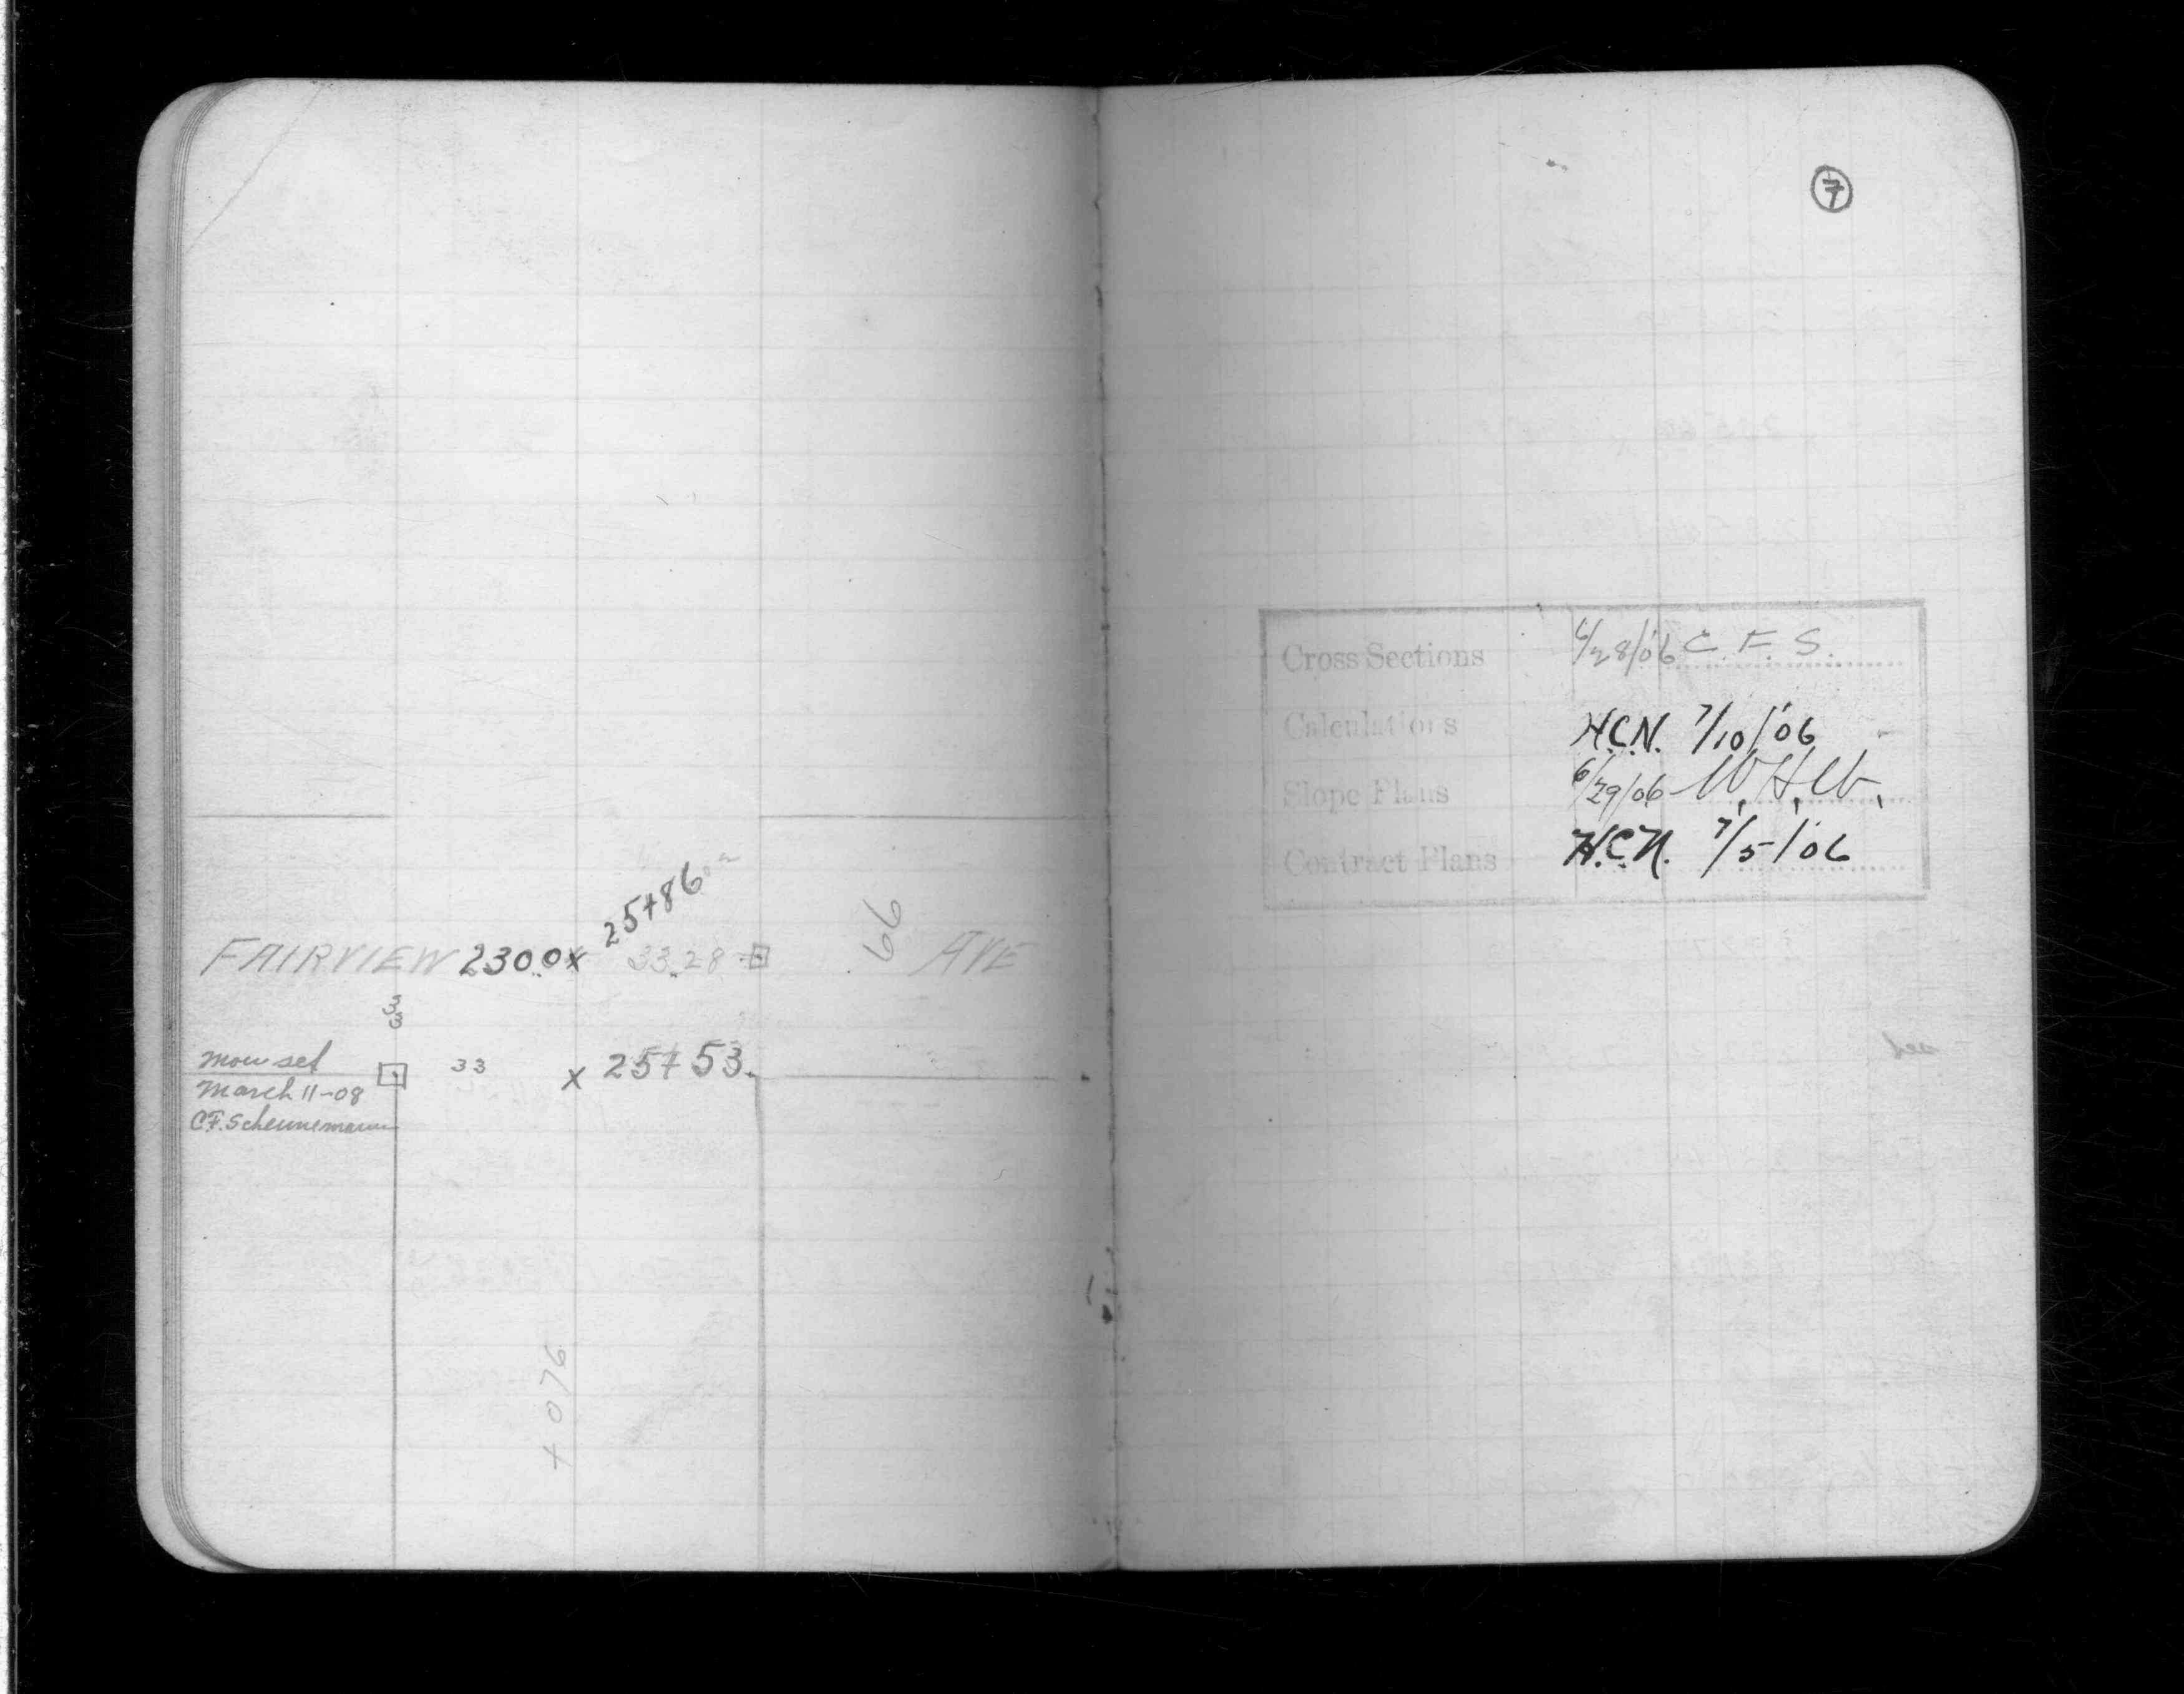 25+86
FAIRVIEW 230.0 x 33.28 66 AVE
33
mon set
33 x 25+53.
March 11-08
C.F. Scheunemann
+ 076
7
Cross Sections 6/28/06 C. F. S.
Calculations H.C.N. 7/10/06
Slope Plans 6/29/06
Contract Plans H.C.N. 7/5/06